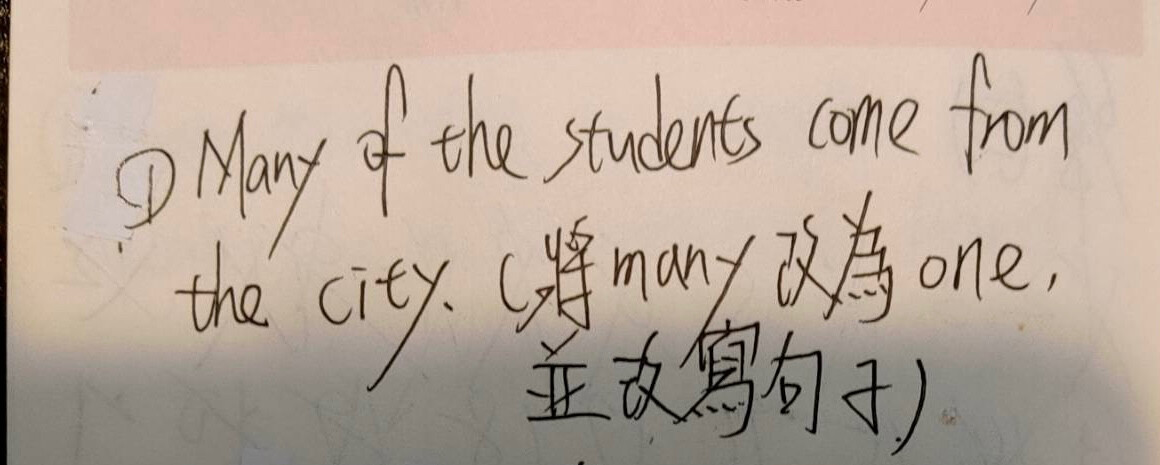 ① Many of the students come from
the city. (將many改為one,
並改寫句子)